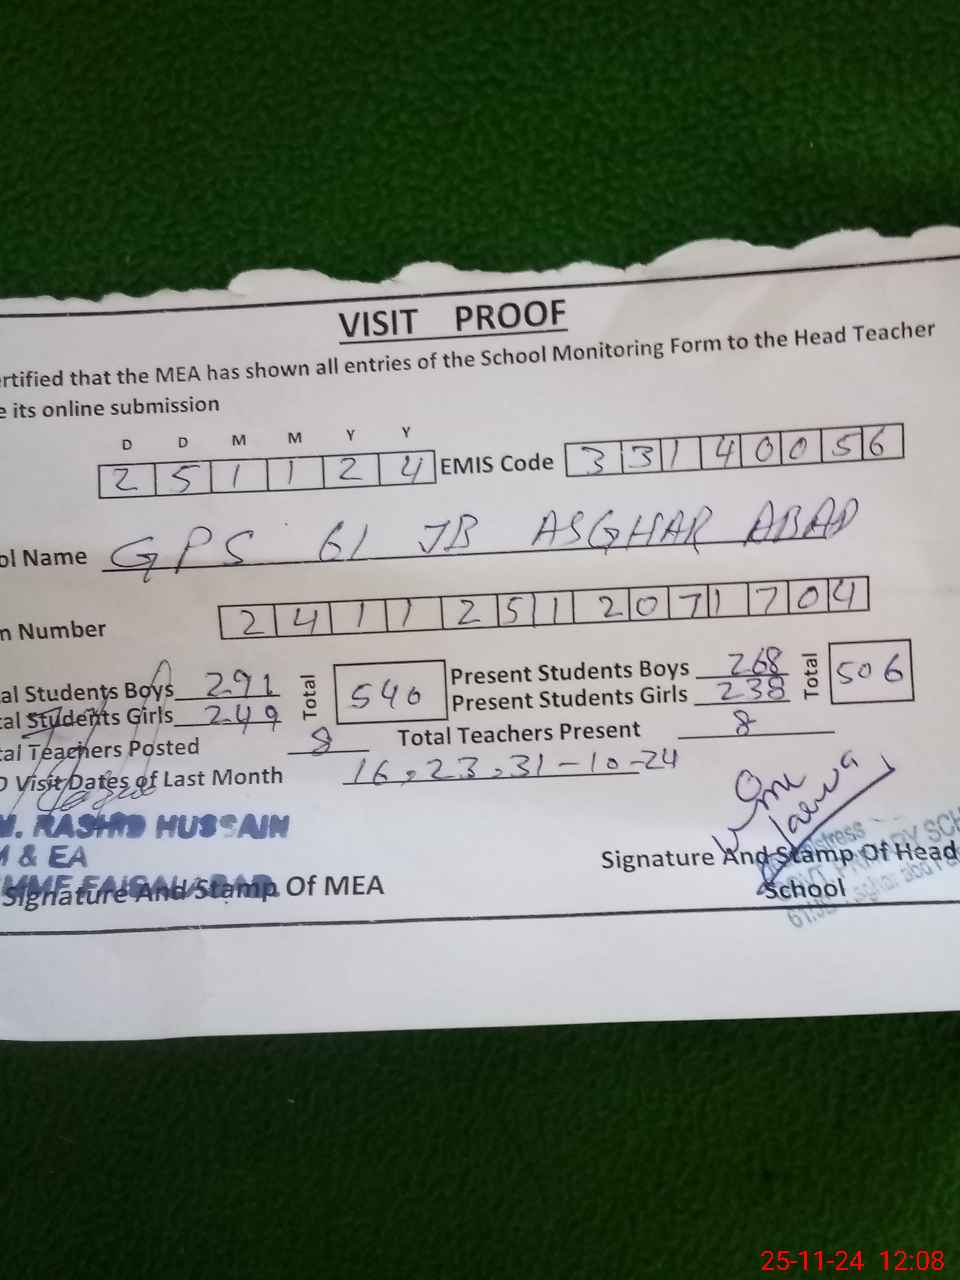 VISIT PROOF
rtified that the MEA has shown all entries of the School Monitoring Form to the Head Teacher
e its online submission
D D M M Y Y
2 5 1 1 2 4 EMIS Code 3 3 1 4 0 0 5 6
ol Name GPS 61 JB ASGHAR ABAD
n Number 2 4 1 1 2 5 1 2 0 7 1 7 0 4
al Students Boys 291 Total 540 Present Students Boys 268 Total 506
al Students Girls 249 Present Students Girls 238
tal Teachers Posted 8 Total Teachers Present 8
O Visit Dates of Last Month 16,23,31-10-24
M. RASHID HUSSAIN
M & EA
FAISALABAD
Signature And Stamp Of MEA
Signature And Stamp Of Head
School
25-11-24 12:08